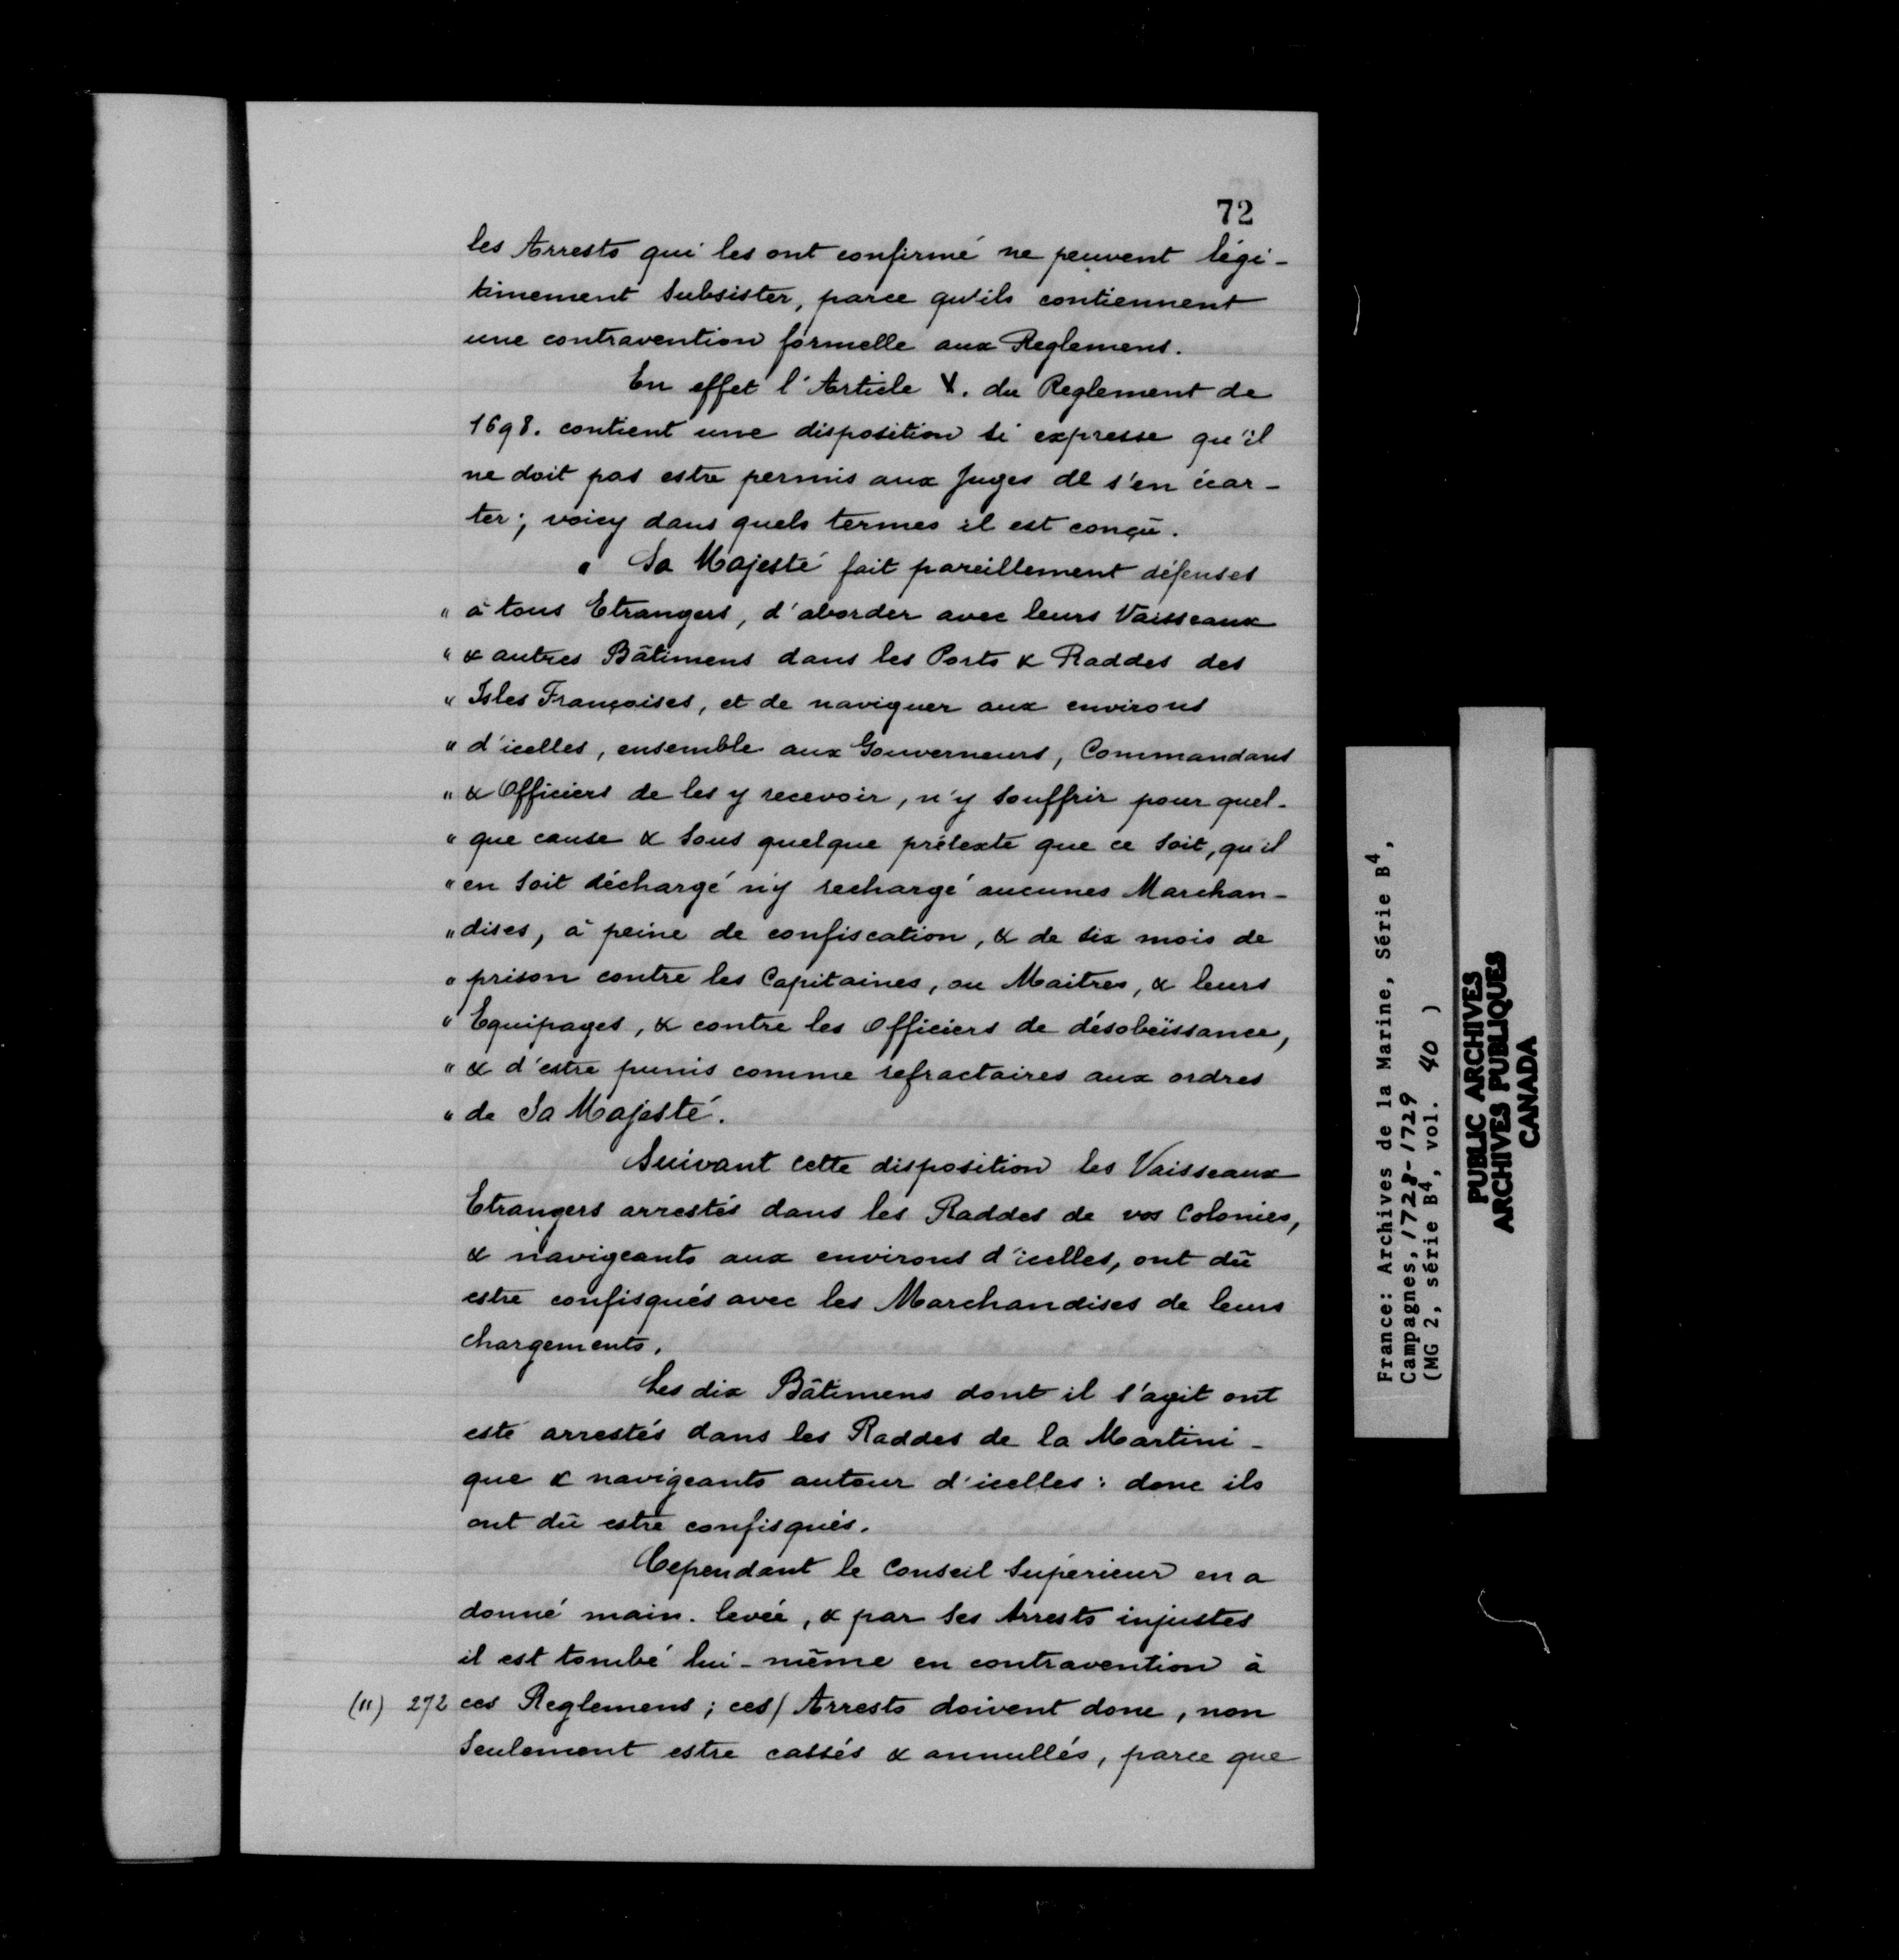 72
les Arrests qui les ont confirmé ne peuvent légi-
timement subsister, parce qu'ils contiennent
une contravention formelle aux Reglemens.
En effet l'Article V. du Reglement de
1698. contient une disposition si expresse qu'il
ne doit pas estre permis aux Juges de s'en écar-
ter; voicy dans quels termes il est conçû.
" Sa Majesté fait pareillement défenses
" à tous Etrangers, d'aborder avec leurs Vaisseaux
" & autres Bâtimens dans les Ports & Raddes des
" Isles Françoises, et de naviguer aux environs
" d'icelles, ensemble aux Gouverneurs, Commandans
" & Officiers de les y recevoir, n'y souffrir pour quel-
" que cause & sous quelque prétexte que ce soit, qu'il
" en soit déchargé n'y rechargé aucunes Marchan-
" dises, à peine de confiscation, & de six mois de
" prison contre les Capitaines, ou Maitres, & leurs
" Equipages, & contre les Officiers de désobeïssance,
" & d'estre punis comme refractaires aux ordres
" de Sa Majesté.
Suivant cette disposition les Vaisseaux
Etrangers arrestés dans les Raddes de vos Colonies,
& navigeants aux environs d'icelles, ont dû
estre confisqués avec les Marchandises de leurs
chargements.
Les dix Bâtimens dont il s'agit ont
esté arrestés dans les Raddes de la Martini-
que & navigeants autour d'icelles: donc ils
ont dû estre confisqués.
Cependant le Conseil Supérieur en a
donné main-levée, & par ses Arrests injustes
il est tombé lui-même en contravention à
(11) 272 ces Reglemens; ces/ Arrests doivent donc, non
seulement estre cassés & annullés, parce que
France: Archives de la Marine, Série B4,
Campagnes, 1728-1729
(MG 2, série B4, vol. 40 )
PUBLIC ARCHIVES
ARCHIVES PUBLIQUES
CANADA